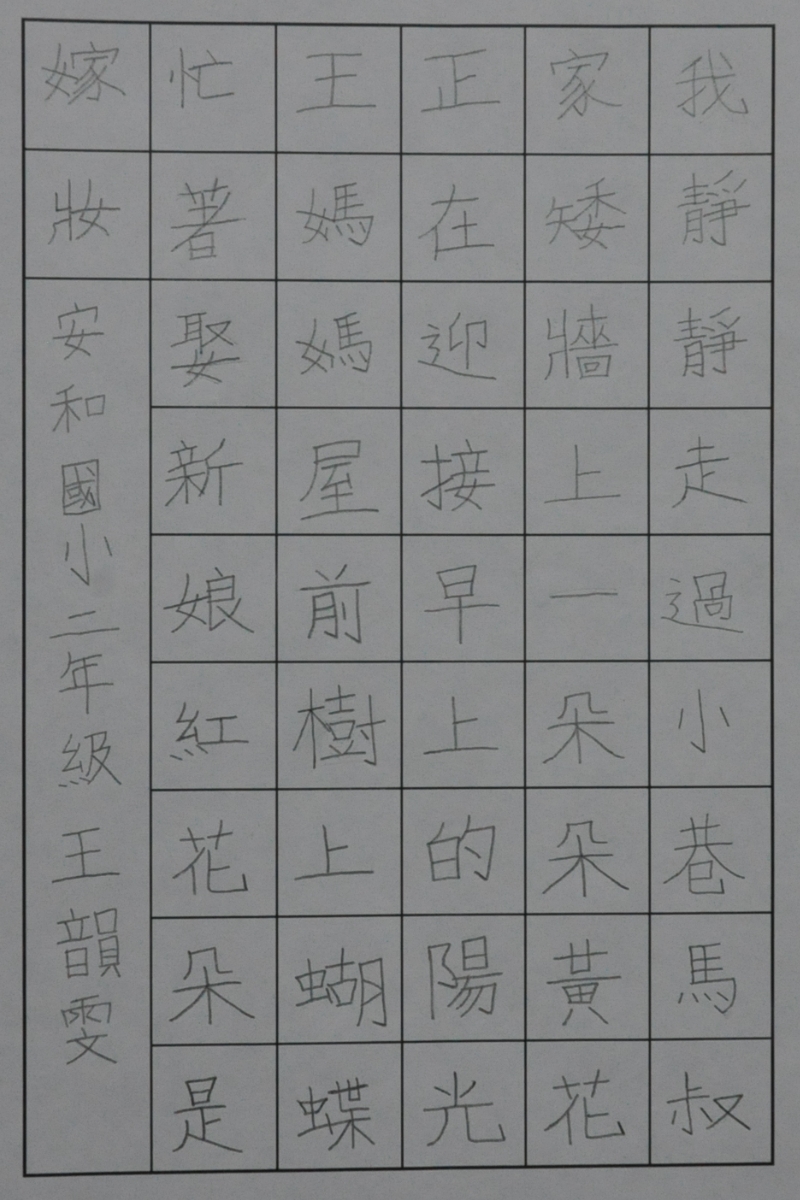 我靜靜走過小巷馬叔
家矮牆上一朵朵黃花
正在迎接早上的陽光
王媽媽屋前樹上蝴蝶
忙著娶新娘紅花朵是
嫁妝
安和國小二年級王韻雯